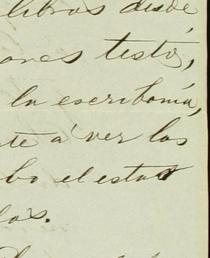 libros desde
ones testos,
la escribanía,
te á ver los
bo el estar
los.